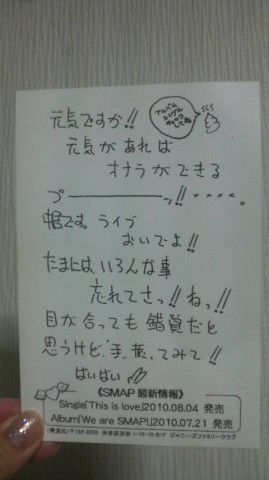 元気ですか!!
アルバム
シングル
チェック
してね
元気があれば
オナラができる
プーーーーッ!!・・・・。
中居です。ライブ
おいでよ!!
たまにはいろんな事
忘れてさっ!!ねっ!!
目が合っても錯覚だと
思うけど、手、振ってみて!!
ばいばい
《SMAP 最新情報》
Single「This is love」2010.08.04 発売
Album「We are SMAP!」2010.07.21 発売
ジャニーズファミリークラブ